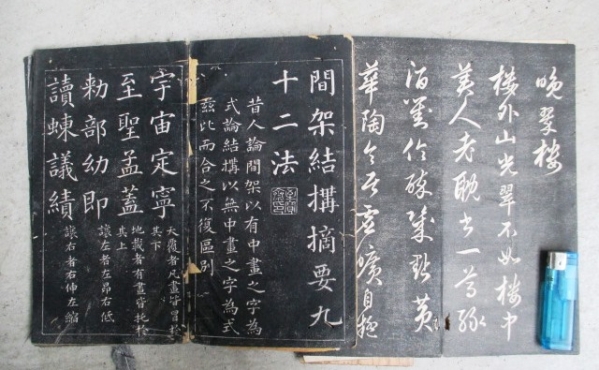 晚翠楼
楼外山光翠不如楼中
美人老
間架結搆摘要九
十二法
昔人論間架以有中畫之字為
式論結搆以無中畫之字為式
茲比而合之不復區別
宇宙定寧
天覆者凡畫皆冒於
其下
至聖孟蓋
地載者有畫皆托於
其上
勅部幼即
讓左者左昂右低
讀蝀議績
讓右者右伸左縮